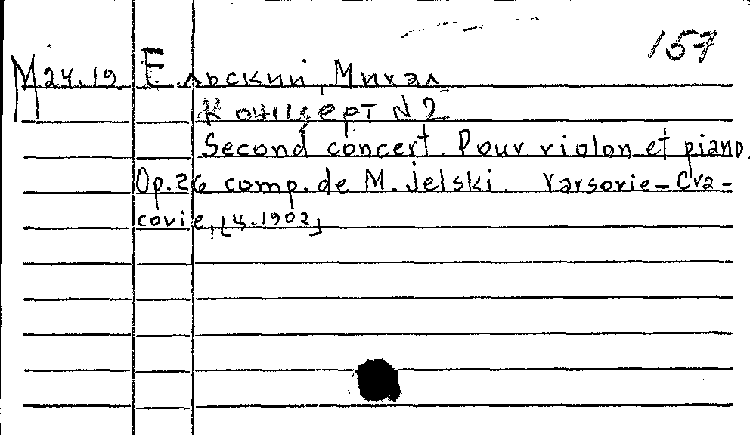 157
М 24.19 Ельский, Михал
Концерт N 2
Second concert. Pour violon et piano.
Op. 26 comp. de M. Jelski. Varsovie-Cra=
covie, [ч. 1902]